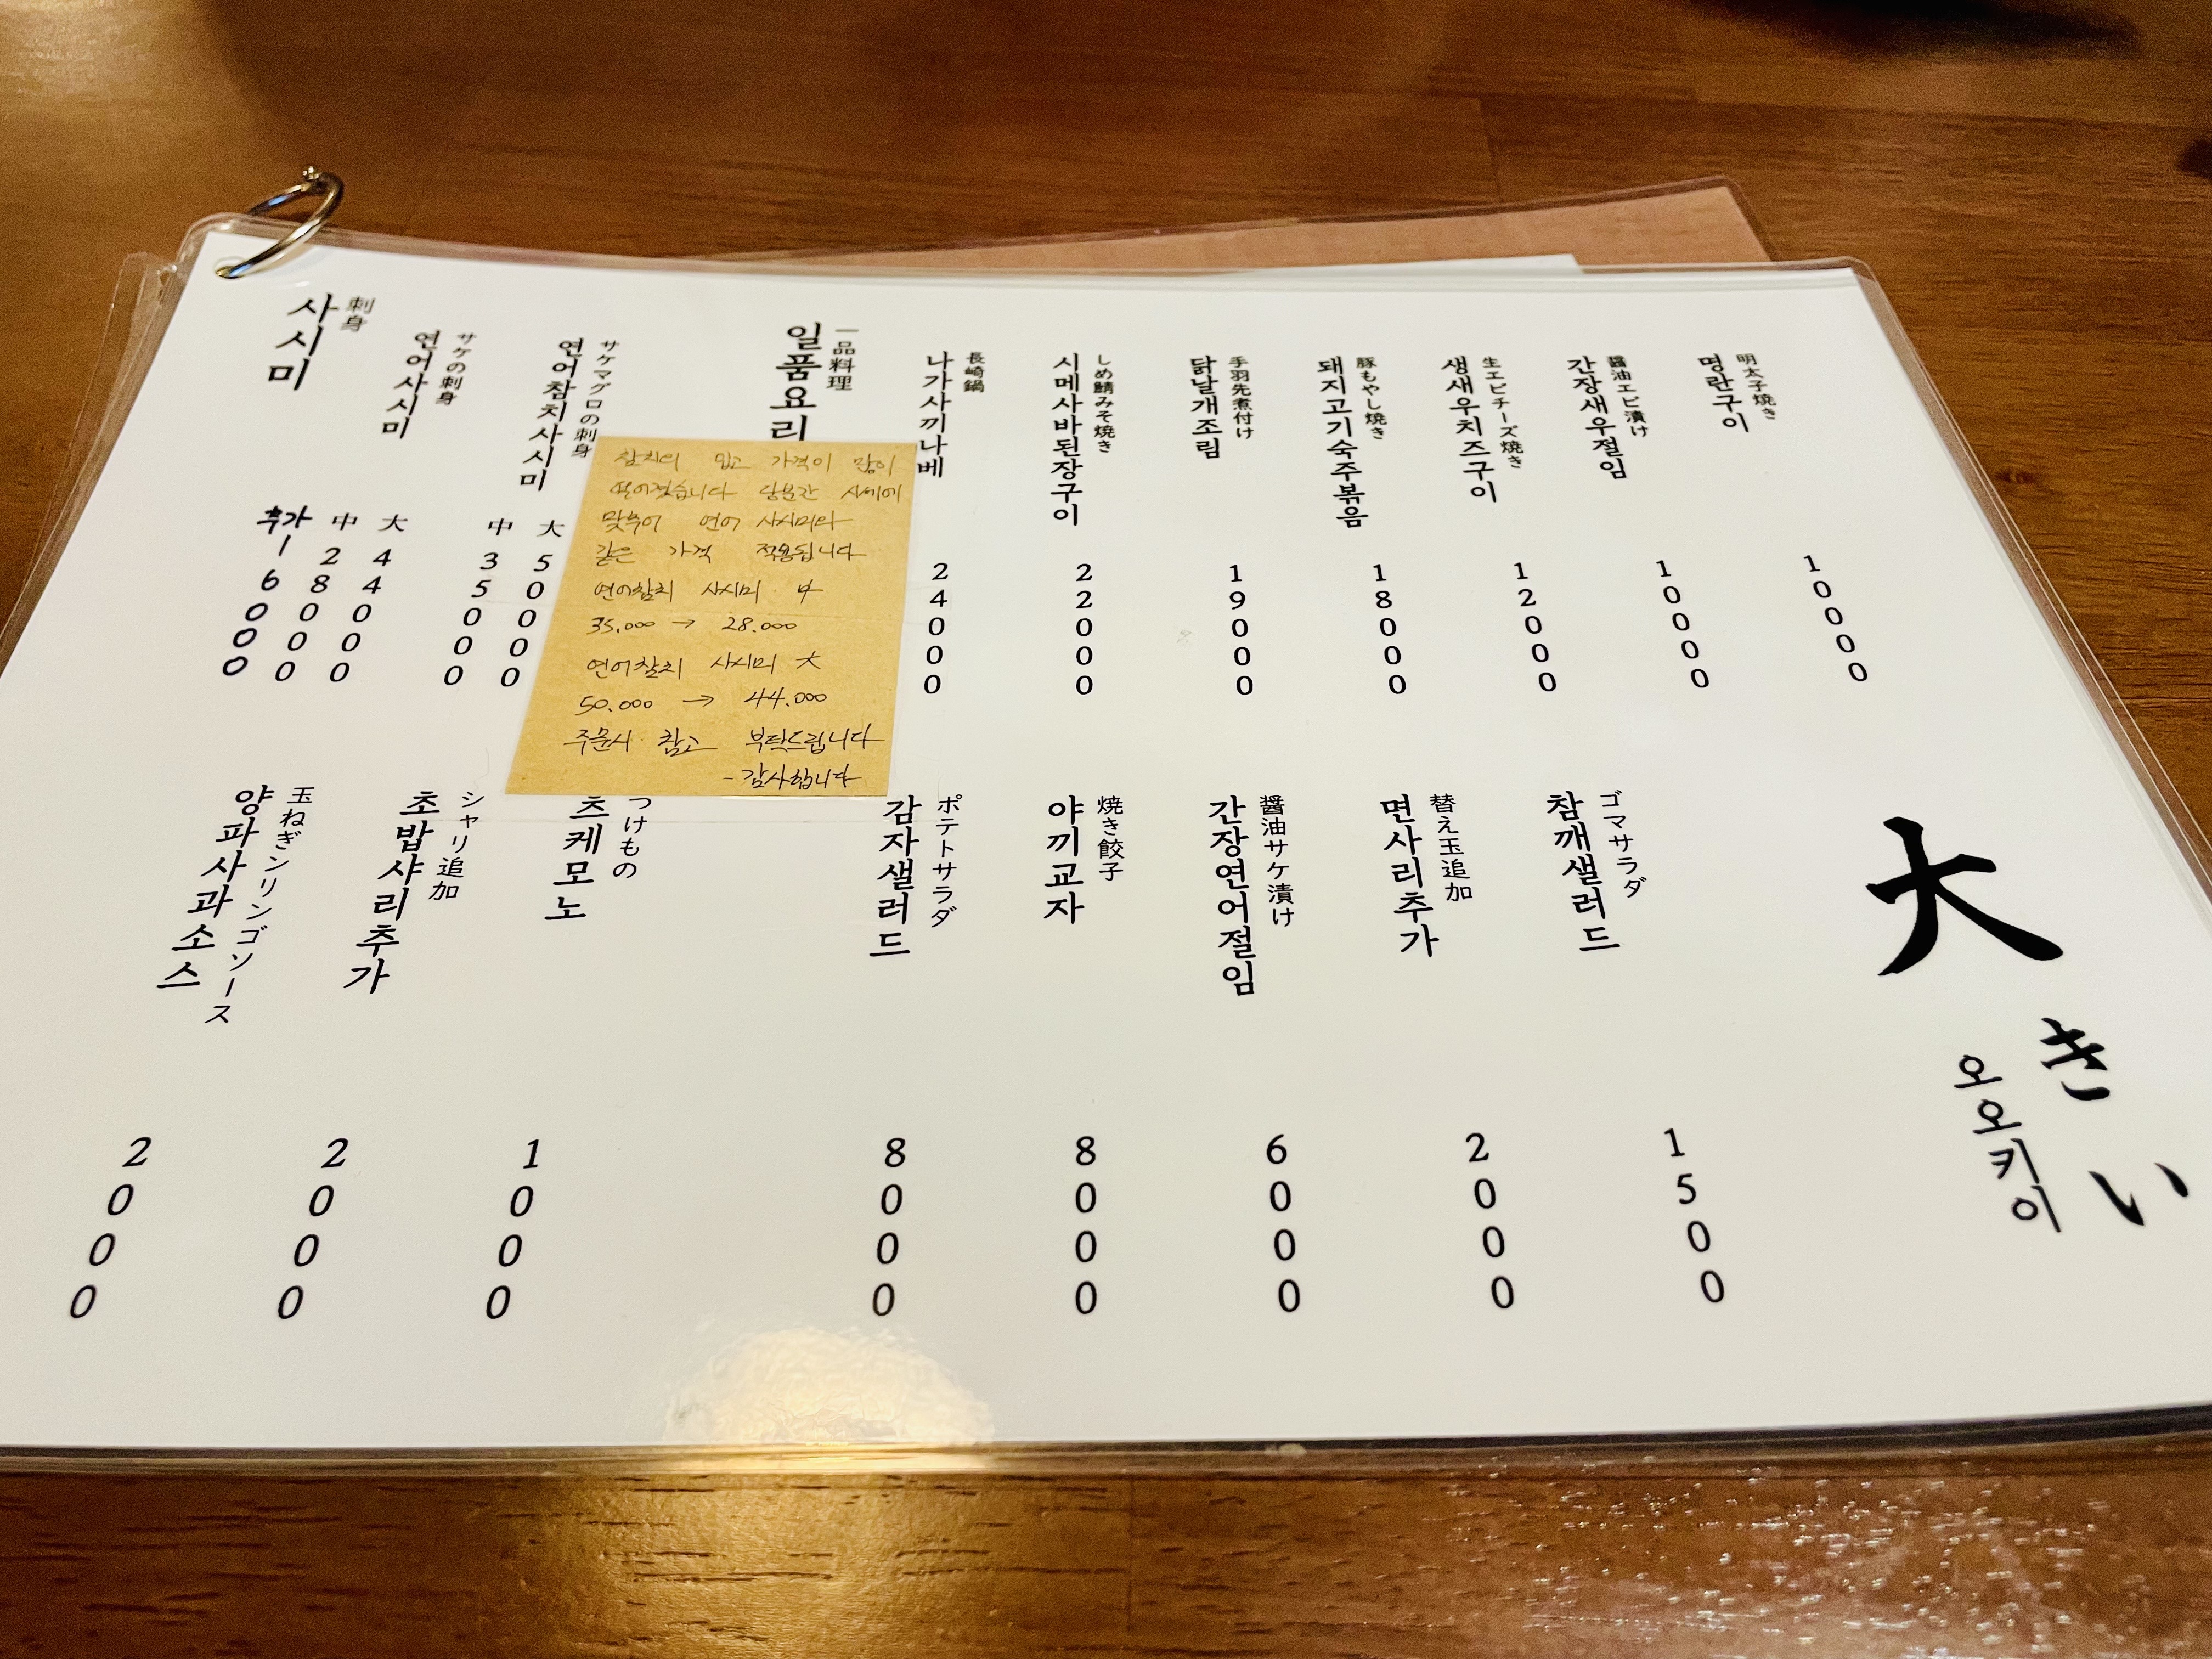 사시미
刺身
연어사시미
サケの刺身
추가 中 大
16000
28000
44000
연어참치사시미
サケマグロの刺身
中 大
35000
50000
일품요리
一品料理
나가사끼나베
長崎鍋
24000
시메사바된장구이
しめ鯖みそ焼き
22000
닭날개조림
手羽先煮付け
19000
돼지고기숙주볶음
豚もやし焼き
18000
생새우치즈구이
生エビチーズ焼き
12000
간장새우절임
醤油エビ漬け
10000
명란구이
明太子焼き
10000
참치의 입고 가격이 많이
떨어졌습니다 당분간 시세에
맞추어 연어 사시미와
같은 가격 적용됩니다
연어참치 사시미 中
35.000 → 28.000
연어참치 사시미 大
50.000 → 44.000
주문시 참고 부탁드립니다
- 감사합니다
양파사과소스
玉ねぎンリンゴソース
2000
초밥샤리추가
シャリ追加
2000
츠케모노
つけもの
1000
감자샐러드
ポテトサラダ
8000
야끼교자
焼き餃子
8000
간장연어절임
醤油サケ漬け
6000
면사리추가
替え玉追加
2000
참깨샐러드
ゴマサラダ
1500
大きい
오오키이